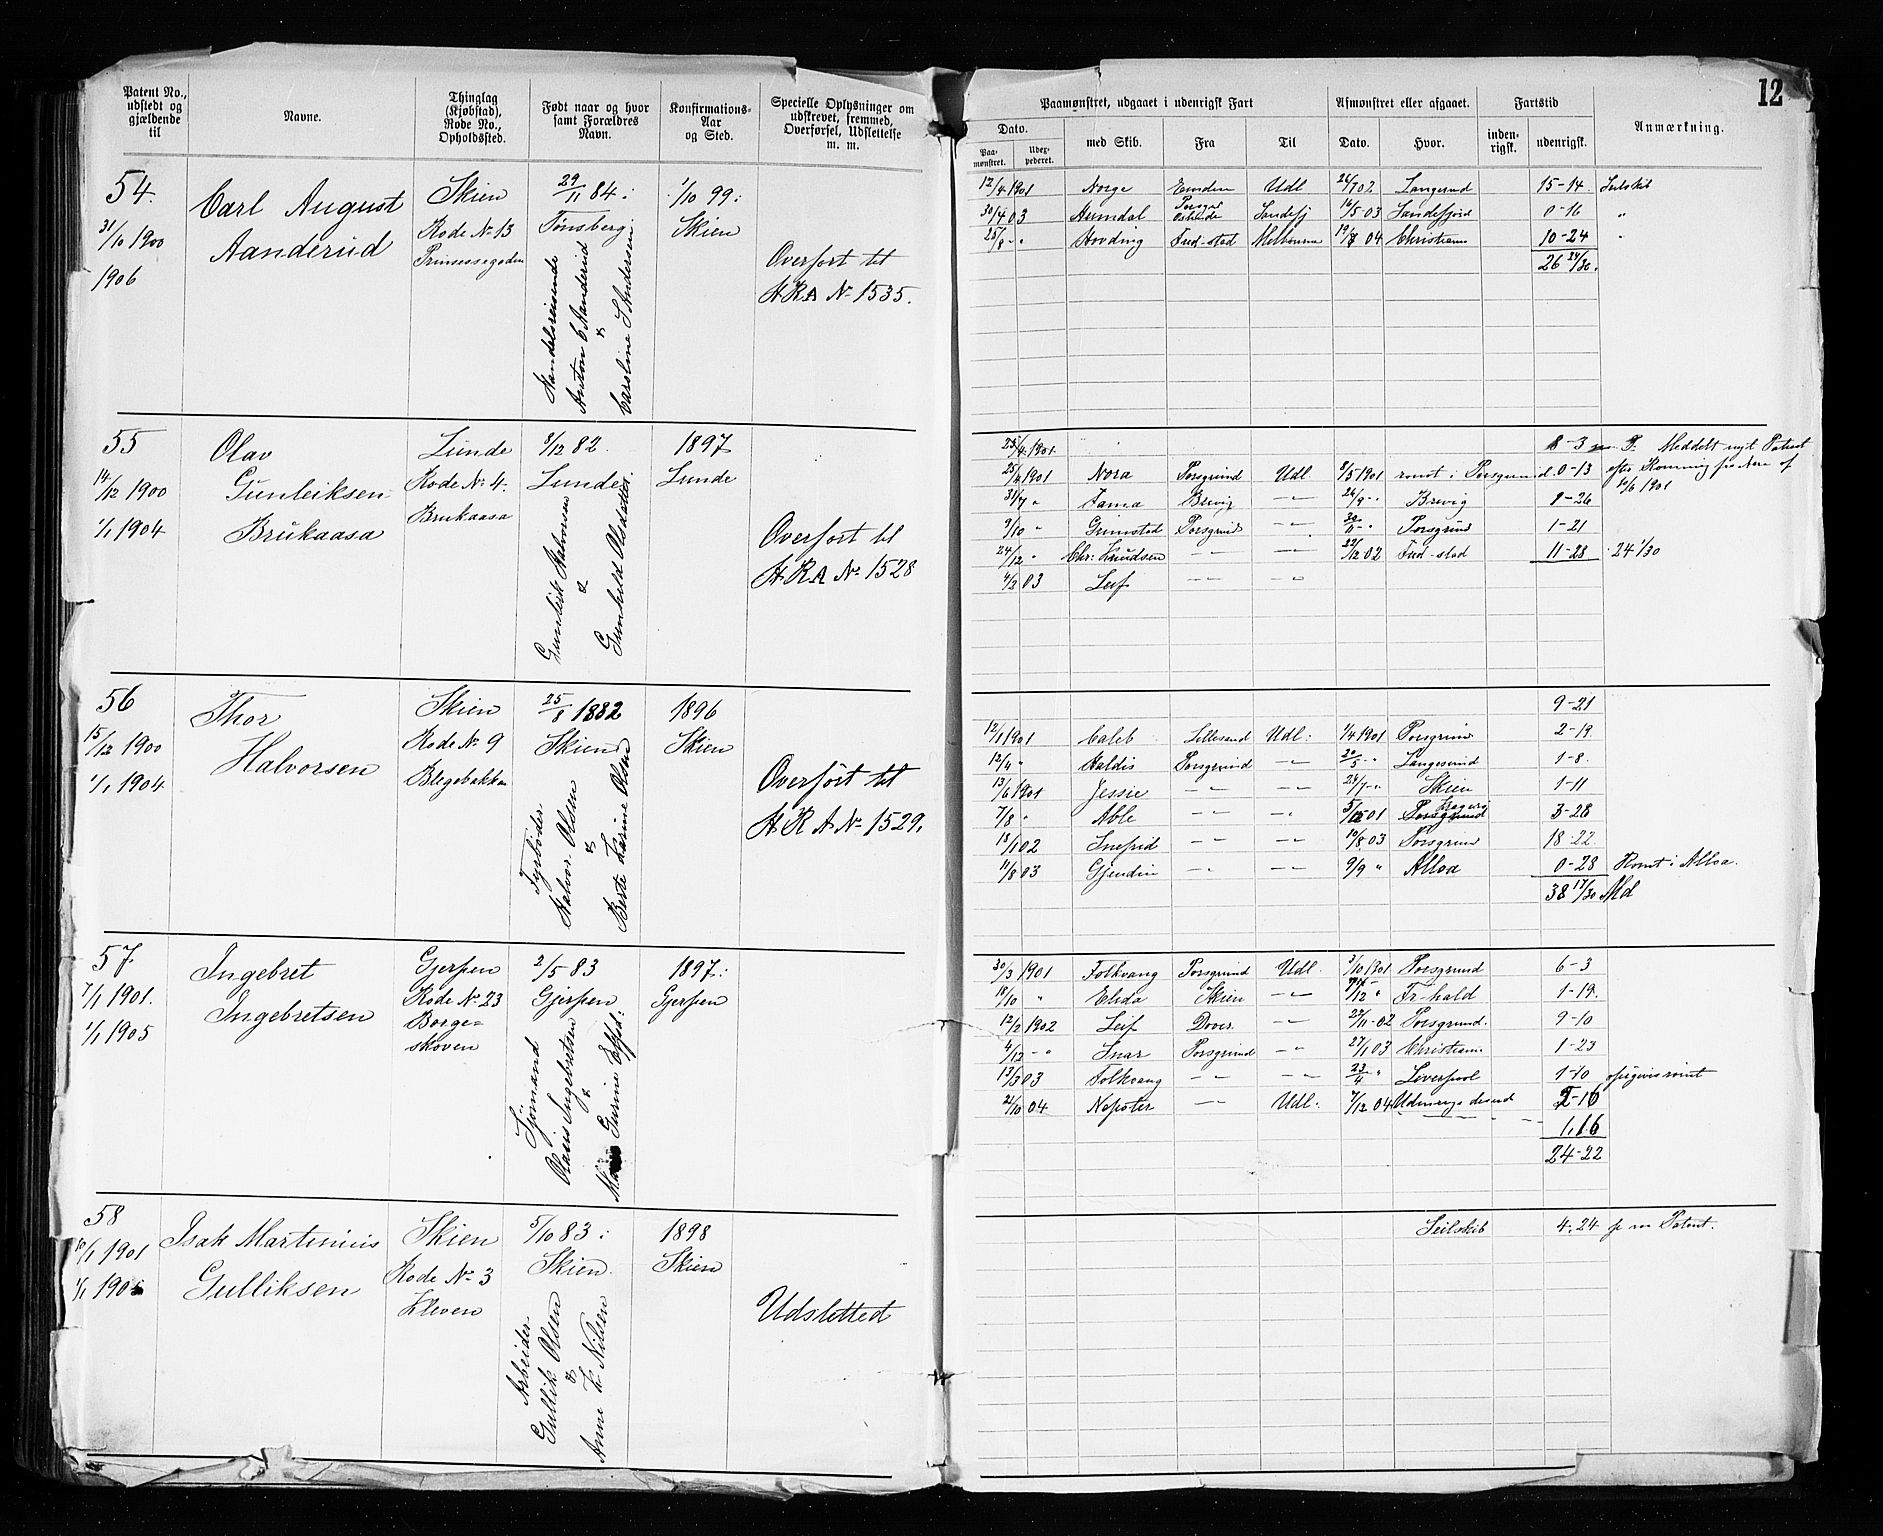 12
Patent No., udstedt og gjældende til
Navne.
Thinglag (Kjøbstad), Rode No., Opholdssted.
Født naar og hvor samt Forældres Navn.
Konfirmations-Aar og Sted.
Specielle Oplysninger om udskrevet, fremmed, Overførsel, Udslettelse m. m.
Paamønstret, udgaaet i udenrigsk Fart
Afmønstret eller afgaaet.
Fartstid
Anmærkning.
Dato.
Paa-mønstret.
med Skib.
Fra
Til
Dato.
Hvor.
inden-rigsk.
udenrigsk.
54.
31/10 1900
1906
Carl August
Aanderud
Skien
Rode No 13
Prinsessegaden
29/11 84.
Tønsberg
Handelsreisende
Anton C Aanderud
&
Caroline S Andersen
1/10 99.
Skien
Overført til
H.R.A No 1535.
12/4 1901 Norge Emden Udl 26/7 02 Langesund 15-14 Seilskib
30/4 03 Heimdal Sandefj 16/5 03 Sandefjord 0-16 "
25/8 - " Hovding Fred-stad Melbourne 19/7 04 Christiania 10-24 "
26 24/30.
55
14/12 1900
1/1 1904
Olav
Gunleiksen
Brukaasa
Lunde
Rode No 4.
Brukaasa
8/12 82.
Lunde
Gunleik Halvorsen
&
Gunhild Olsdatter
1897
Lunde
Overført til
H.R.A No 1528
23/4 1901. 8-3 Meddelt nyt Patent
25/4 1901 Nora Porsgrund Udl. 8/5 1901 romt i Porsgrund 0-13 efter Romning fra Nora af 10/6 1901
31/7 " Fama Brevig -"- 26/9 - " Brevig 1-26
9/10 " Grimstad Porsgrund -"- 30/11 - " Porsgrund 1-21
24/12 " Chr: Knudsen -"- -"- 22/12 02 Fred-stad 11-28 24 1/30
4/2 03 Leif -"- -"-
56
15/12 1900
1/1 1904
Thor
Halvorsen
Skien
Rode No 9
Blegebakken
25/8 1882
Skien
Fyrbøder
Halvor Olsen
&
Berte Karine Olsen
1896
Skien
Overført til
H.R.A No 1529.
9-21
12/1 1901 Caleb Lillesand Udl: 1/4 1901 Porsgrund 2-19
12/4 " Haldis Porsgrund -"- 20/5 - " Langesund 1-8
13/6 1901 Jessie -"- -"- 24/7 - " Skien 1-11
7/8 " Able -"- -"- 5/12 01 3-28
18/1 02 Snefrid -"- -"- 10/8 03 Porsgrund 18-22
11/8 03 Gjendin -"- -"- 9/9 " Alloa 0-28 Romt i Alloa.
38 17/30 Md
57.
7/1 1901.
1/1 1905
Ingebret
Ingebretsen
Gjerpen
Rode No 23
Borge-
skoven
2/5 83
Gjerpen
Sjømand
Olaus Ingebretsen
&
Gurine Elfsd:
1897.
Gjerpen
30/3 1901 Folkvang Porsgrund Udl. 3/10 1901 Porsgrund 6-3
18/10 " Elida Skien -"- Fr-hald 1-19.
12/2 1902 Leif Dover. -"- 22/11 - 02 Porsgrund. 9-10
4/12 - " Snar Porsgrund -"- 27/1 03 Christiania 1-23
13/3 03 Folkvang -"- -"- 23/4 " Liverpool 1-10 opgives romt
21/10 04 Nepoter -"- Udl: 7/12 04 2-16
1,16
24-22
58
10/1 1901
1/1 1905
Isak Martinius
Gulliksen
Skien
Rode No 3
Kleven
5/10 83
Skien.
Arbeider
Gullik Olsen
&
Anne K. Nilsen
1898
Skien
Udslettet
Seilskib 4-24 Patent.